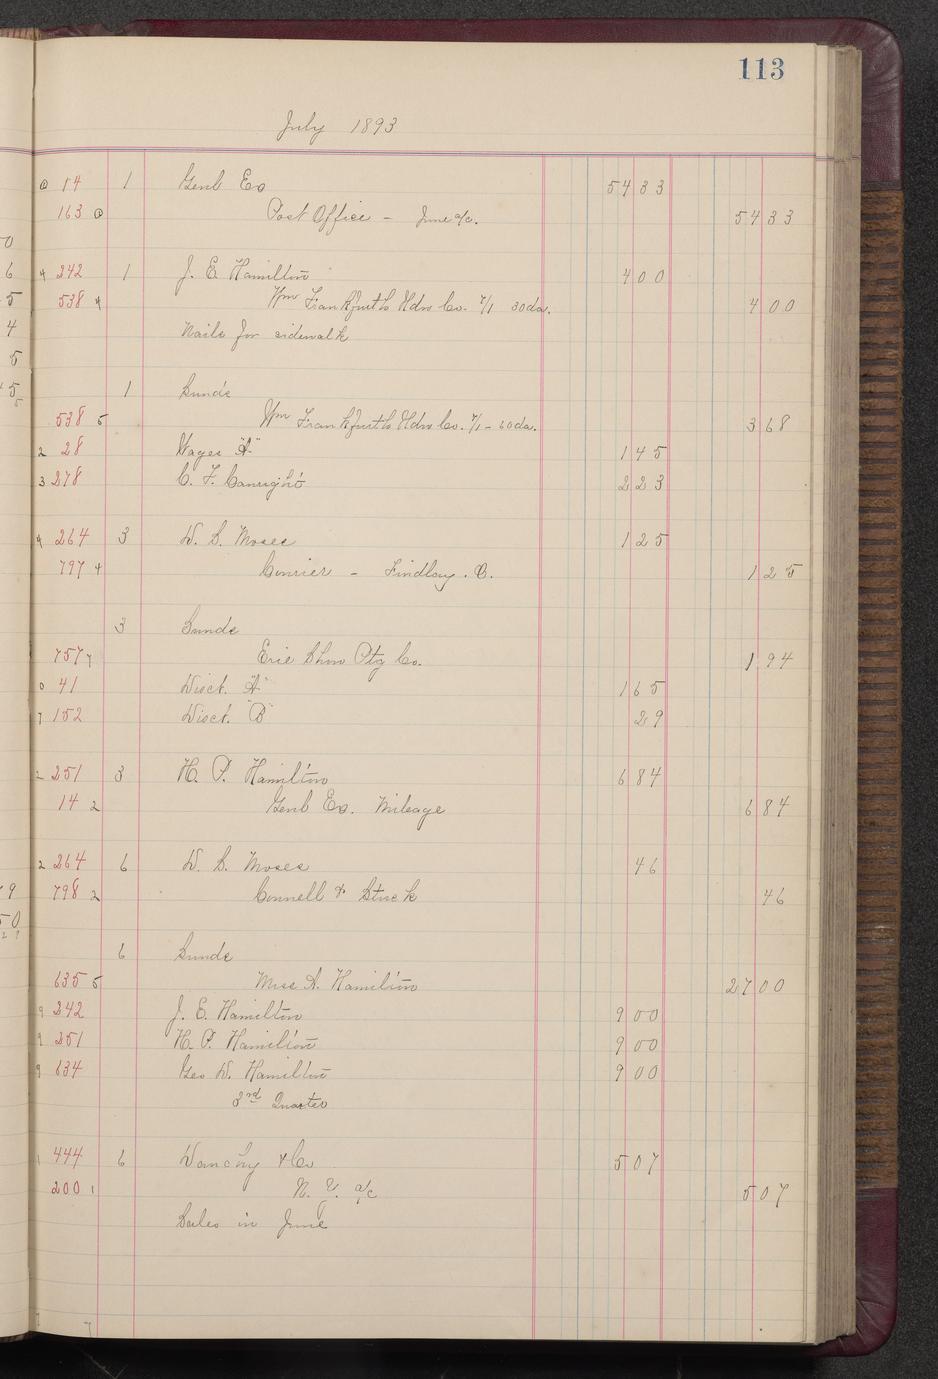 113
July 1893
14 1 Genl Ex 54 33
163 Post Office - June a/c. 54 33
4 242 1 J. E. Hamilton 4 00
538 4 Wm Frankfurth Hdw Co. 7/1 30da. 4 00
Nails for sidewalk
1 Sunds
538 5 Wm Frankfurth Hdw Co. 7/1 - 60da. 3 68
2 28 Wages "A" 1 45
3 278 C. F. Canright 2 23
4 264 3 W. B. Moses 1 25
797 4 Courier - Findlay. O. 1 25
3 Sunds
757 7 Erie Show Ptg Co. 1 94
0 41 Disct. "A" 1 65
7 152 Disct. "B" 29
2 251 3 H. P. Hamilton 6 84
14 2 Genl Ex. Mileage 6 84
2 264 6 W. B. Moses 46
798 2 Connell & Stuck 46
6 Sunds
635 5 Miss A. Hamilton 27 00
9 242 J. E. Hamilton 9 00
9 251 H. P. Hamilton 9 00
9 634 Geo W. Hamilton 9 00
3rd Quarter
1 444 6 &Co 5 07
200 1 N. Y. a/c 5 07
Sales in June